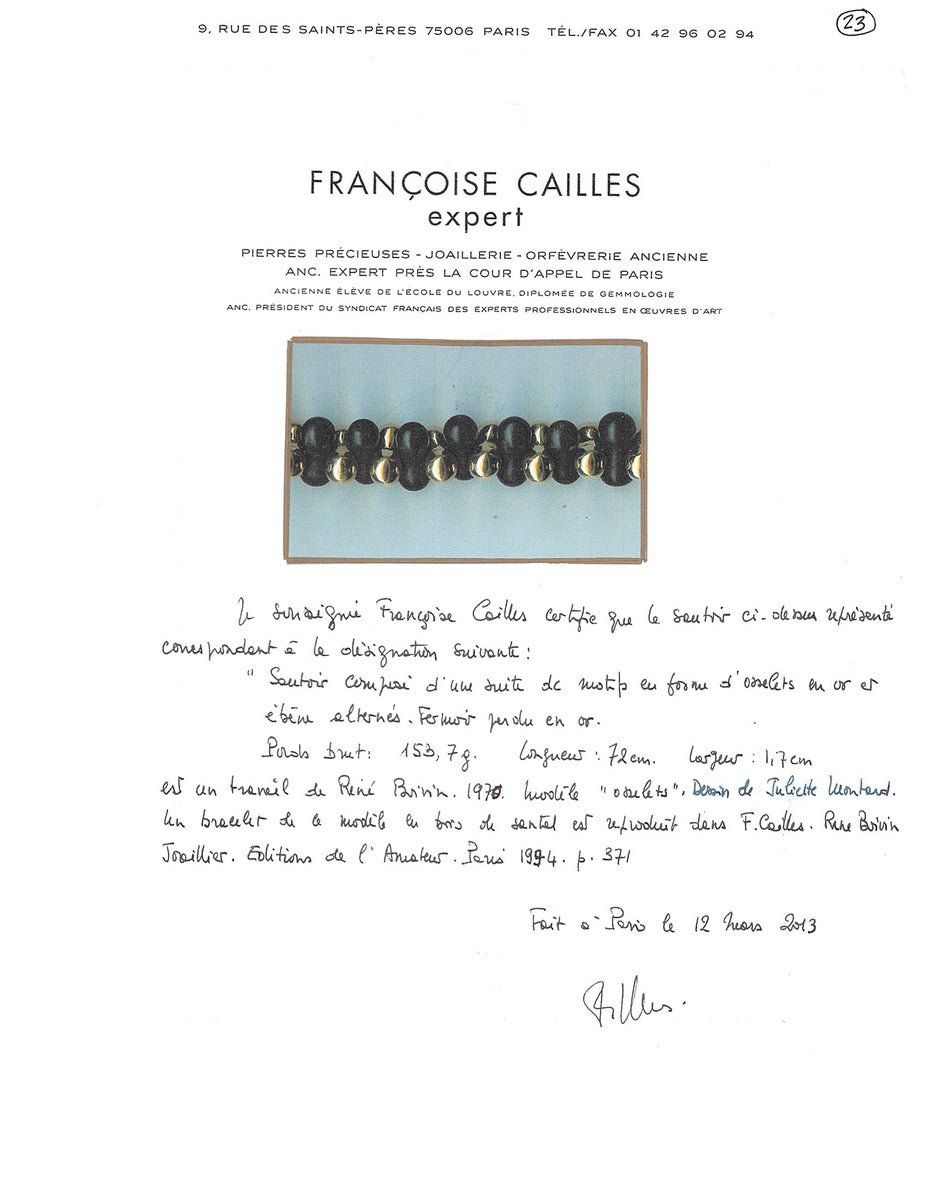 9, RUE DES SAINTS-PÈRES 75006 PARIS TÉL./FAX 01 42 96 02 94
23
FRANÇOISE CAILLES
expert
PIERRES PRÉCIEUSES - JOAILLERIE - ORFÈVRERIE ANCIENNE
ANC. EXPERT PRÈS LA COUR D'APPEL DE PARIS
ANCIENNE ÉLÈVE DE L'ÉCOLE DU LOUVRE, DIPLOMÉE DE GEMMOLOGIE
ANC. PRÉSIDENT DU SYNDICAT FRANÇAIS DES EXPERTS PROFESSIONNELS EN ŒUVRES D'ART
Je soussigné Françoise Cailles certifie que le sautoir ci-dessus représenté
correspondant à la désignation suivante :
" Sautoir composé d'une suite de motifs en forme d'osselets en or et
ébène alternés. Fermoir perdu en or.
Poids brut : 153,7 g. Longueur : 72 cm. Largeur : 1,7 cm
est un travail de René Boivin. 1970. Modèle "osselets". Dessin de Juliette Moutard.
Un bracelet de ce modèle en bois de santal est reproduit dans F. Cailles. René Boivin
Joaillier. Editions de l'Amateur. Paris 1994. p. 371
Fait à Paris le 12 mars 2013